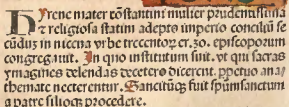 Yrene mater cōstantini mulier prudentissima
⁊ religiosa statim adepto imperio conciliū se
cūdus in nicena vrbe trecentoꝝ ⁊c. 30. episcoporum
congregauit. In quo institutum fuit. vt qui sacras
ymagines celendas decetero dicerent. ppetuo ana
themate necterentur. Sancitūqꝫ fuit spūmsanctum
a patre filioqꝫ procedere.